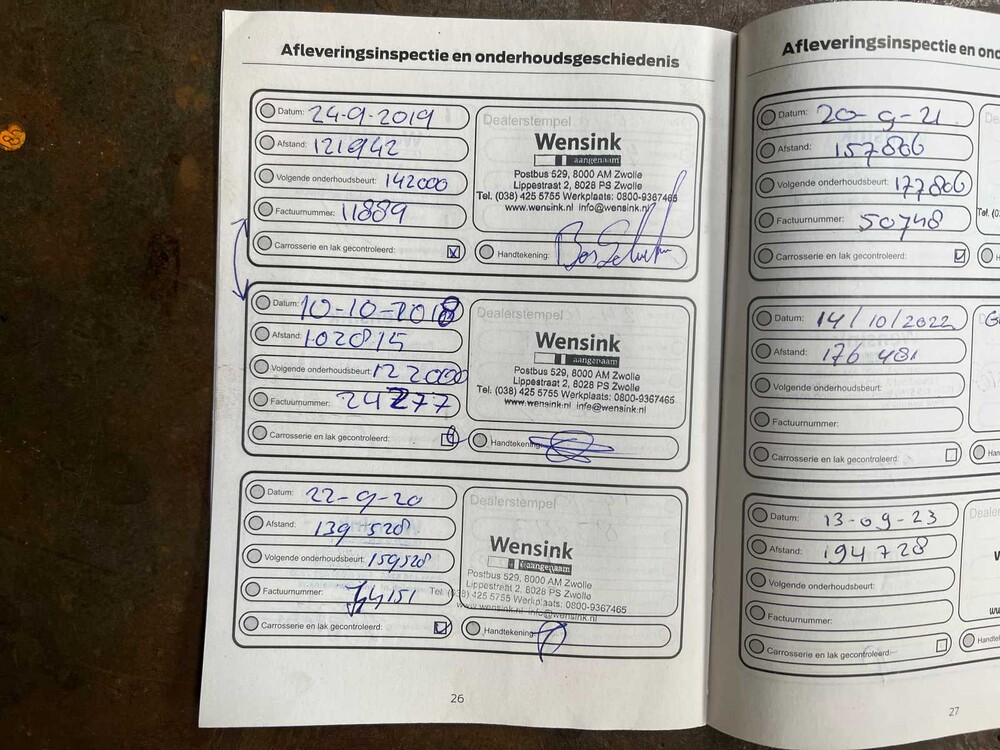 Afleveringsinspectie en onderhoudsgeschiedenis
Datum: 24-9-2019
Afstand: 121942
Volgende onderhoudsbeurt: 142000
Factuurnummer: 11889
Carrosserie en lak gecontroleerd:
Dealerstempel
Wensink
aangenaam
Postbus 529, 8000 AM Zwolle
Lippestraat 2, 8028 PS Zwolle
Tel. (038) 425 5755 Werkplaats: 0800-9367465
www.wensink.nl info@wensink.nl
Handtekening:
Datum: 10-10-2018
Afstand: 102815
Volgende onderhoudsbeurt: 122000
Factuurnummer: 24277
Carrosserie en lak gecontroleerd:
Dealerstempel
Wensink
aangenaam
Postbus 529, 8000 AM Zwolle
Lippestraat 2, 8028 PS Zwolle
Tel. (038) 425 5755 Werkplaats: 0800-9367465
www.wensink.nl info@wensink.nl
Handtekening:
Datum: 22-9-20
Afstand: 139 528
Volgende onderhoudsbeurt: 159528
Factuurnummer:
Carrosserie en lak gecontroleerd:
Dealerstempel
Wensink
aangenaam
Postbus 529, 8000 AM Zwolle
Lippestraat 2, 8028 PS Zwolle
Tel. (038) 425 5755 Werkplaats: 0800-9367465
www.wensink.nl info@wensink.nl
Handtekening:
26
Afleveringsinspectie en ond
Datum: 20-9-21
Afstand: 157806
Volgende onderhoudsbeurt: 177806
Factuurnummer: 50748
Carrosserie en lak gecontroleerd:
De
Tel. (0
H
Datum: 14/10/2022
Afstand: 176 481
Volgende onderhoudsbeurt:
Factuurnummer:
Carrosserie en lak gecontroleerd:
Han
Datum: 13-09-23
Afstand: 194 728
Volgende onderhoudsbeurt:
Factuurnummer:
Carrosserie en lak gecontroleerd:
Dealer
W
ww
Handtek
27